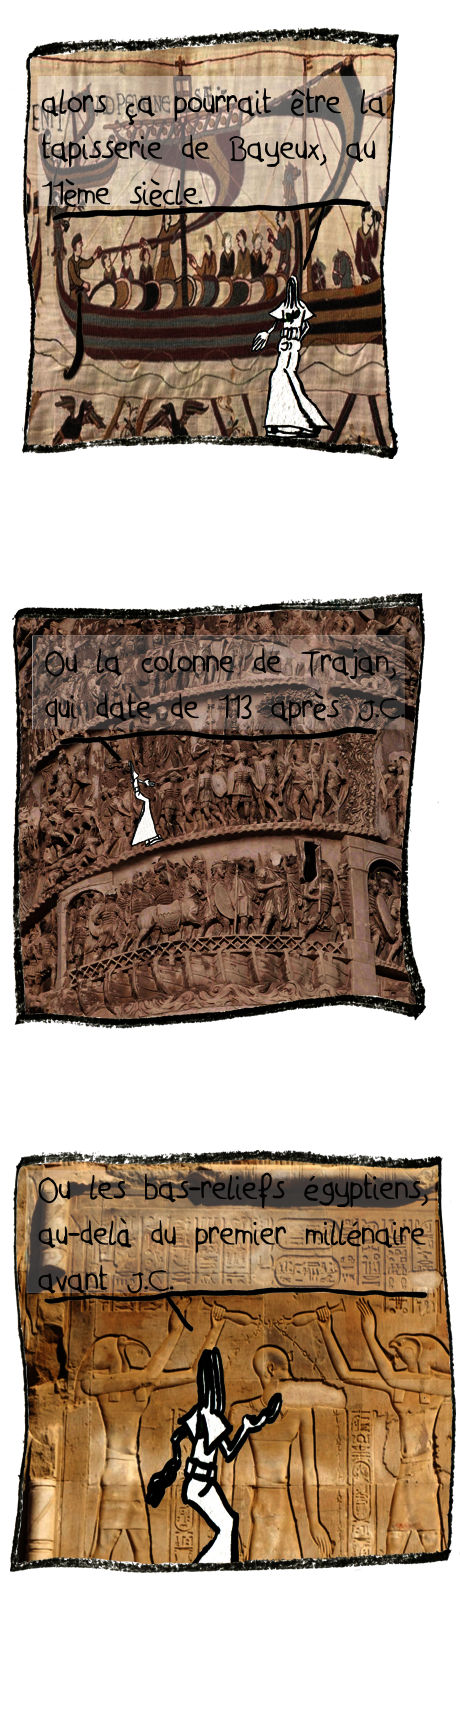 alors ça pourrait être la
tapisserie de Bayeux, au
11ème siècle.
Ou la colonne de Trajan,
qui date de 113 après J.C.
Ou les bas-reliefs égyptiens,
au-delà du premier millénaire
avant J.C.